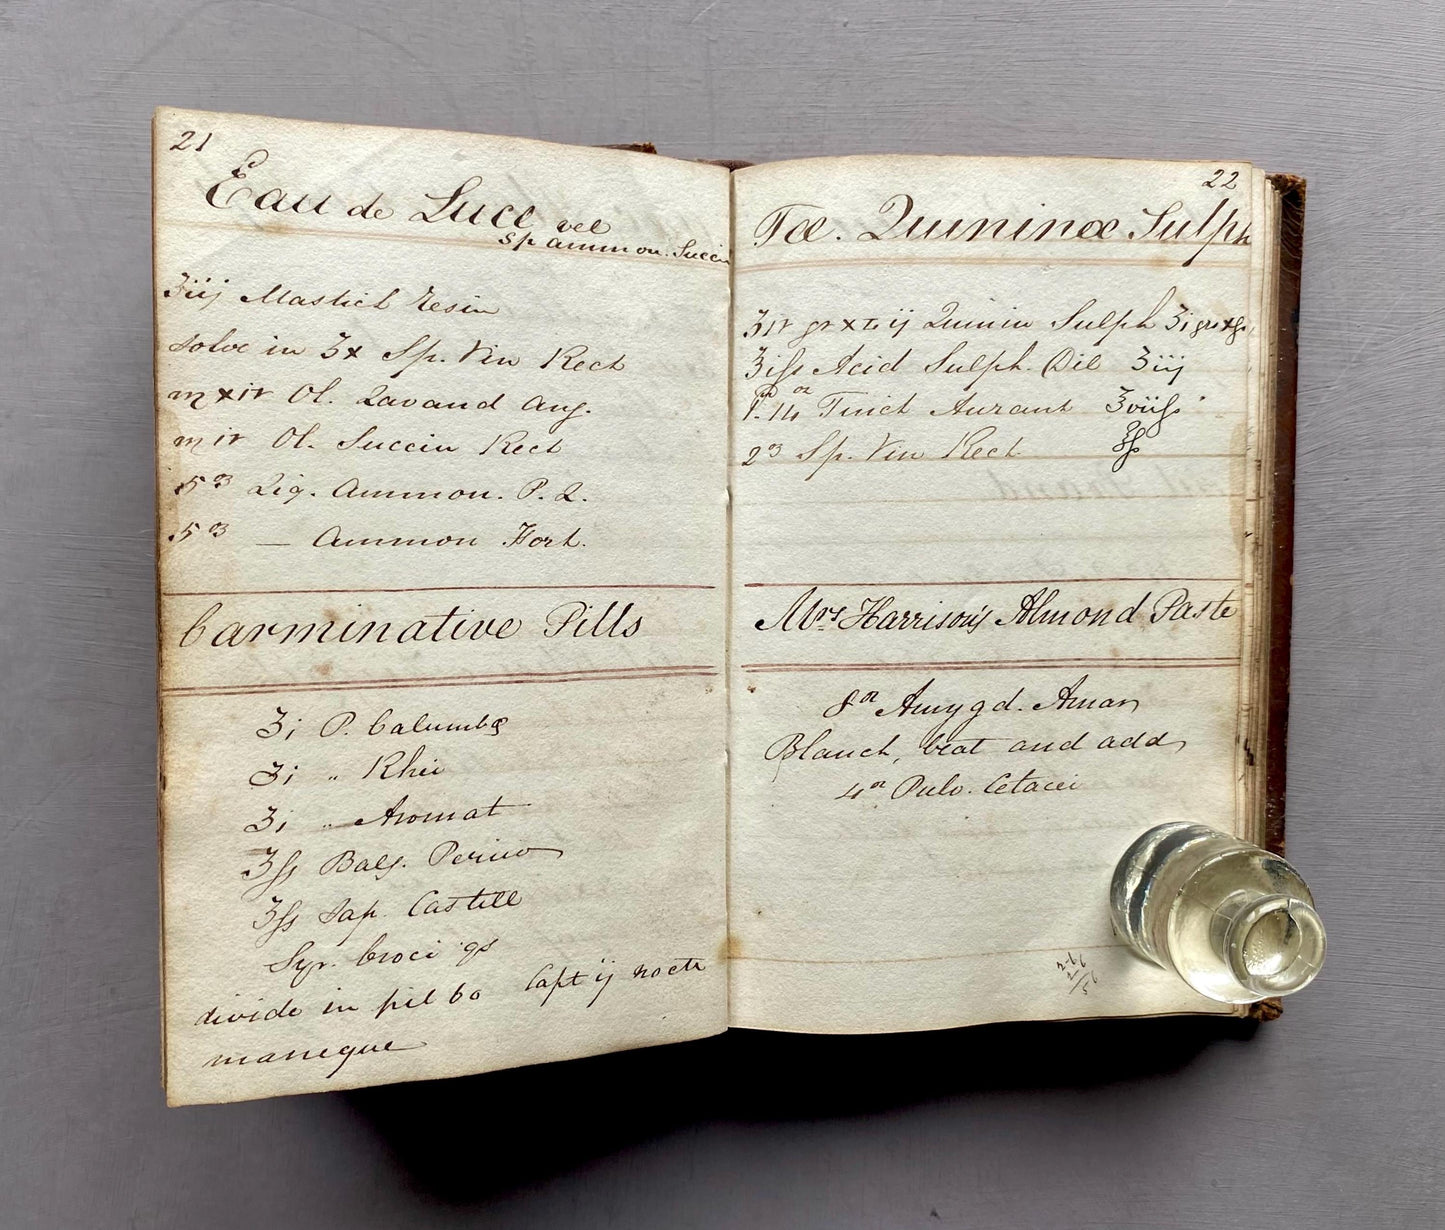 21
Eau de Luce vel
Sp ammon. Succin
ʒiij Mastich resin
solve in ʒx Sp. Vin Rect
♏xiv Ol. Lavand Ang.
♏iv Ol. Succin Rect
5 oz Liq. Ammon. P. L.
5 oz — Ammon Fort.
Carminative Pills
ʒi P. Calumbæ
ʒi „ Rhei
ʒi „ Aromat
ʒſs Bals. Peruv
ʒſs Sap. Castill
Syr. Croci qs
divide in pil 60 Capt ij nocte
maneque
22
Tæ. Quininæ Sulph
ʒiv gr xLij Quinin Sulph ʒi grs
ʒiſs Acid Sulph. Dil ʒiij
14 oz Tinct Aurant ℥viiſs
2 oz Sp. Vin Rect ℥ſs
Mrs Harrison's Almond Paste
8 oz Amygd. Amar
Blanch, beat and add
4 oz Pulv. Cetacei
2-6
2-6
56